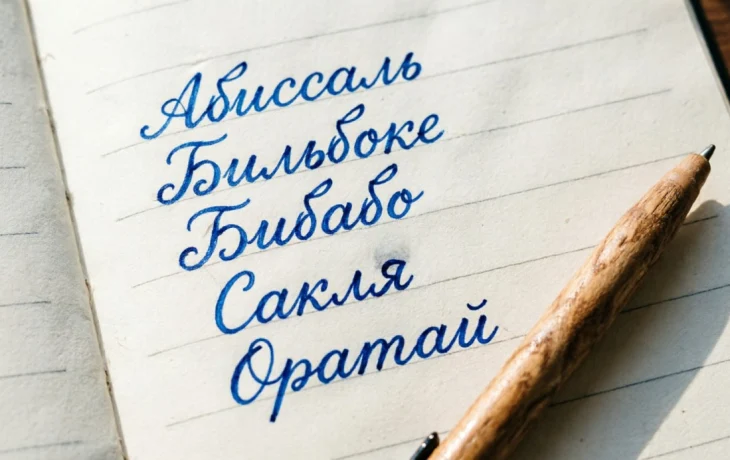 Абиссаль
Бильбоке
Бибабо
Сакля
Оратай